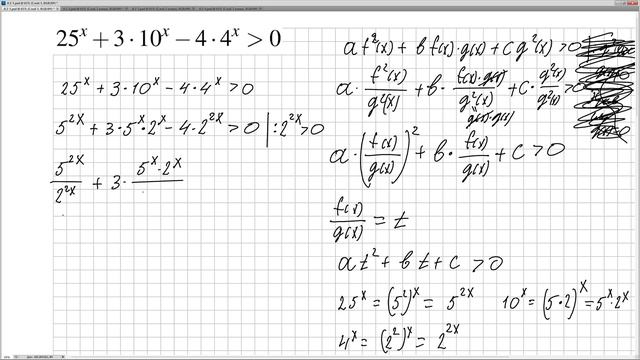 25ˣ + 3 · 10ˣ − 4 · 4ˣ > 0
25ˣ + 3 · 10ˣ − 4 · 4ˣ > 0
5²ˣ + 3 · 5ˣ · 2ˣ − 4 · 2²ˣ > 0 | : 2²ˣ > 0
5²ˣ/2²ˣ + 3 · 5ˣ · 2ˣ/
af²(x) + bf(x)·g(x) + cg²(x) > 0
a · f²(x)/g²(x) + b · f(x)·g(x)/g²(x) + c · g²(x)/g²(x) > 0
g(x)·g(x)
a · (f(x)/g(x))² + b · f(x)/g(x) + c > 0
f(x)/g(x) = t
at² + bt + c > 0
25ˣ = (5²)ˣ = 5²ˣ 10ˣ = (5·2)ˣ = 5ˣ·2ˣ
4ˣ = (2²)ˣ = 2²ˣ